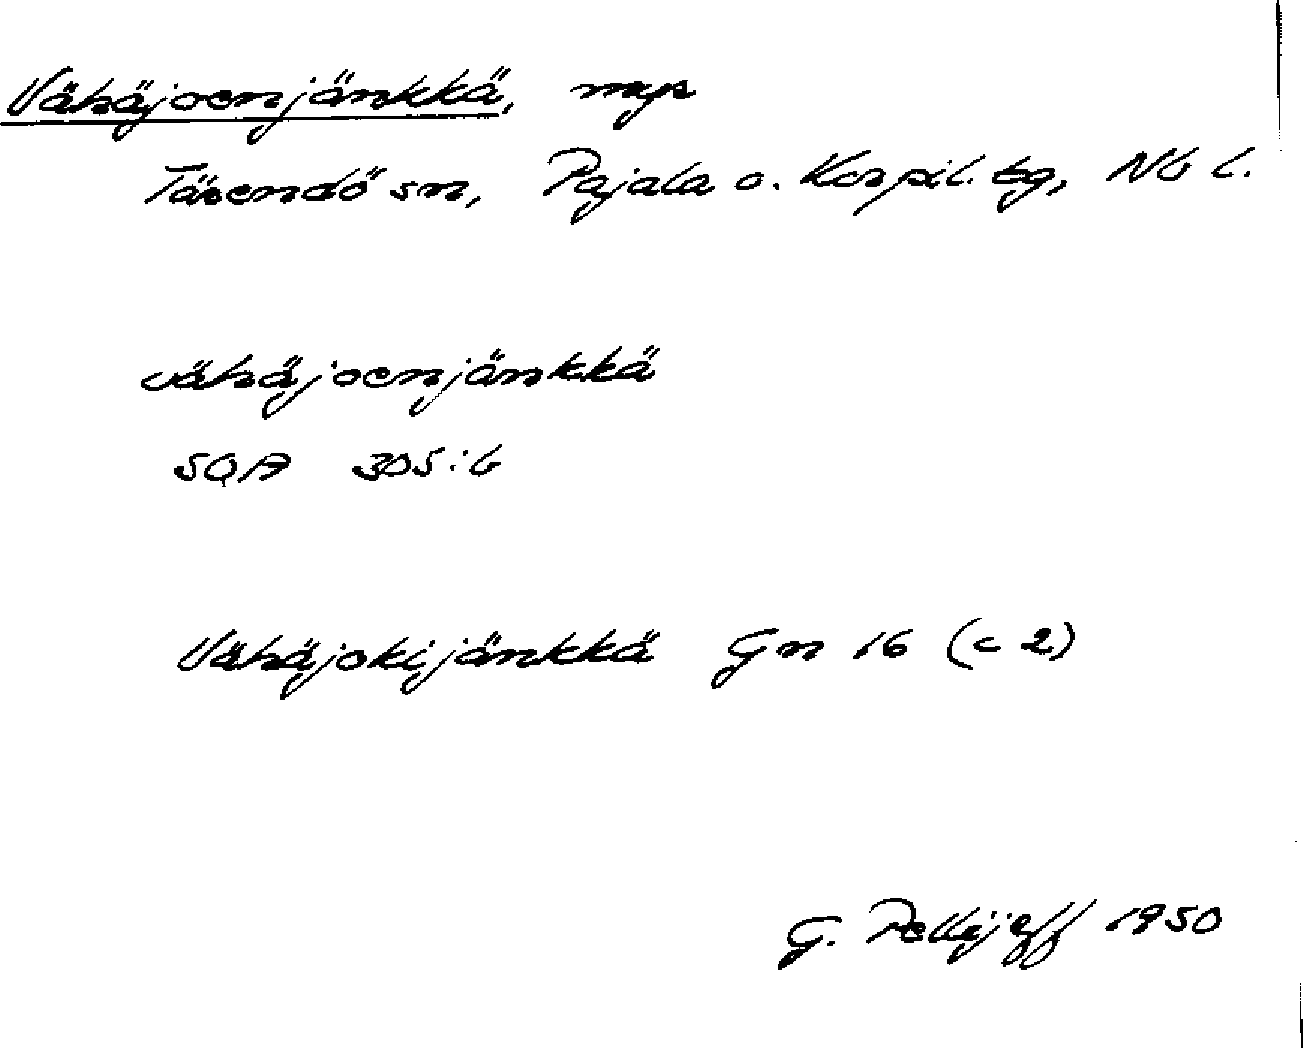 Vähäjoenjänkkä, myr
Tärendö sn, Pajala o. Korpil. tg, Nb l.
vähäjoenjänkkä
SOA 305:6
Vähäjokijänkkä Gn 16 (c 2)
G. Pellijeff 1950